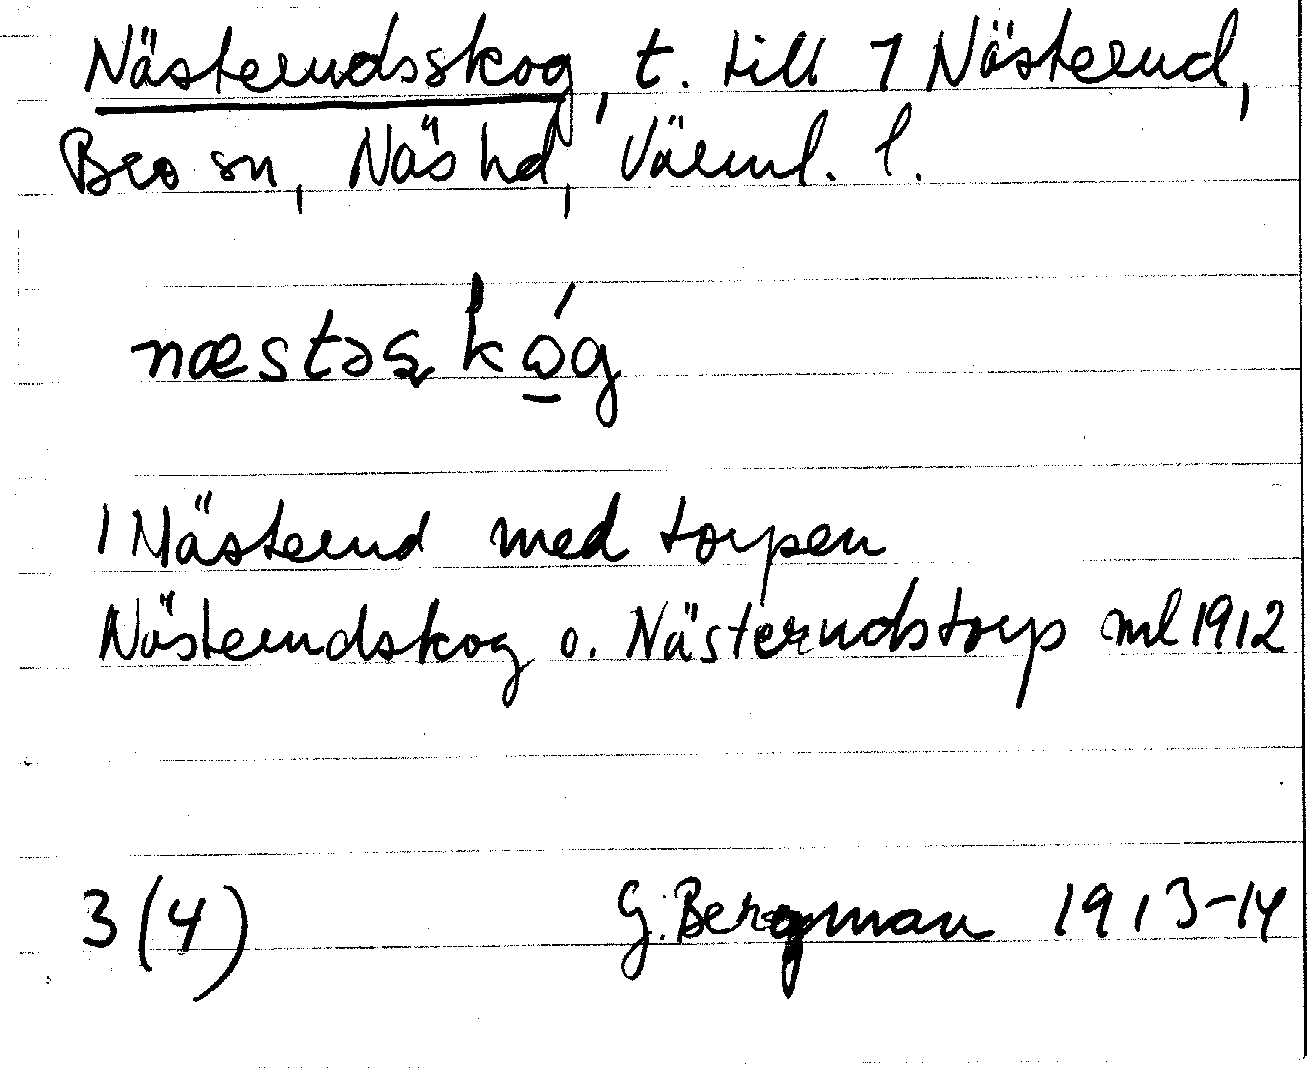 Nästerudsskog, t. till 1 Nästerud,
Bro sn, Näs hd, Värml. l.
næstəʂkǫ́g
1 Nästerud med torpen
Nästerudskog o. Nästerudstorp ml 1912
3 (4) G. Bergman 1913-14